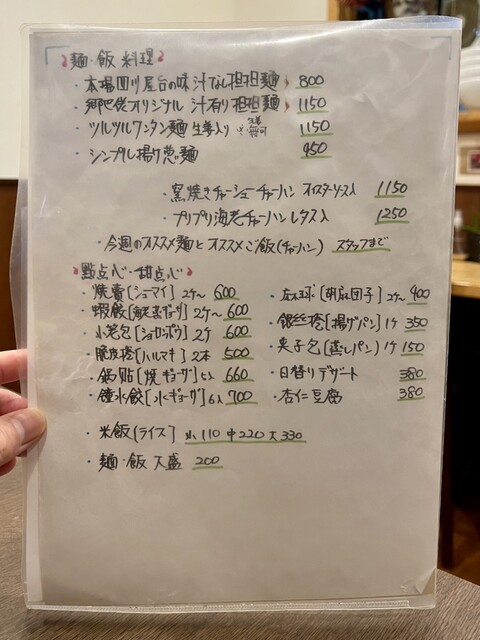 麺・飯 料理
・本場四川屋台の味 汁なし担担麺 800
・郷巴佬オリジナル 汁有り担担麺 1150
・ツルツルワンタン麺 生姜入り 1150
・シンプル揚げ葱麺 950
・窯焼きチャーシューチャーハン オイスターソース入 1150
・プリプリ海老チャーハン レタス入 1250
・今週のオススメ麺とオススメご飯(チャーハン) スタッフまで
點点心・甜点心
・焼賣[シューマイ] 2ケ〜 600
・蝦餃[海老蒸ギョーザ] 2ケ〜 600
・小籠包[ショウロンポウ] 2ケ 600
・脆皮捲[ハルマキ] 2本 500
・鍋貼[焼ギョーザ] 5入 660
・鐘水餃[水ギョーザ] 6入 700
・麻球[胡麻団子] 2ケ〜 400
・銀絲捲[揚げパン] 1ケ 350
・夾子包[蒸しパン] 1ケ 150
・日替りデザート 380
・杏仁豆腐 380
・米飯[ライス] 小110 中220 大330
・麺・飯 大盛 200